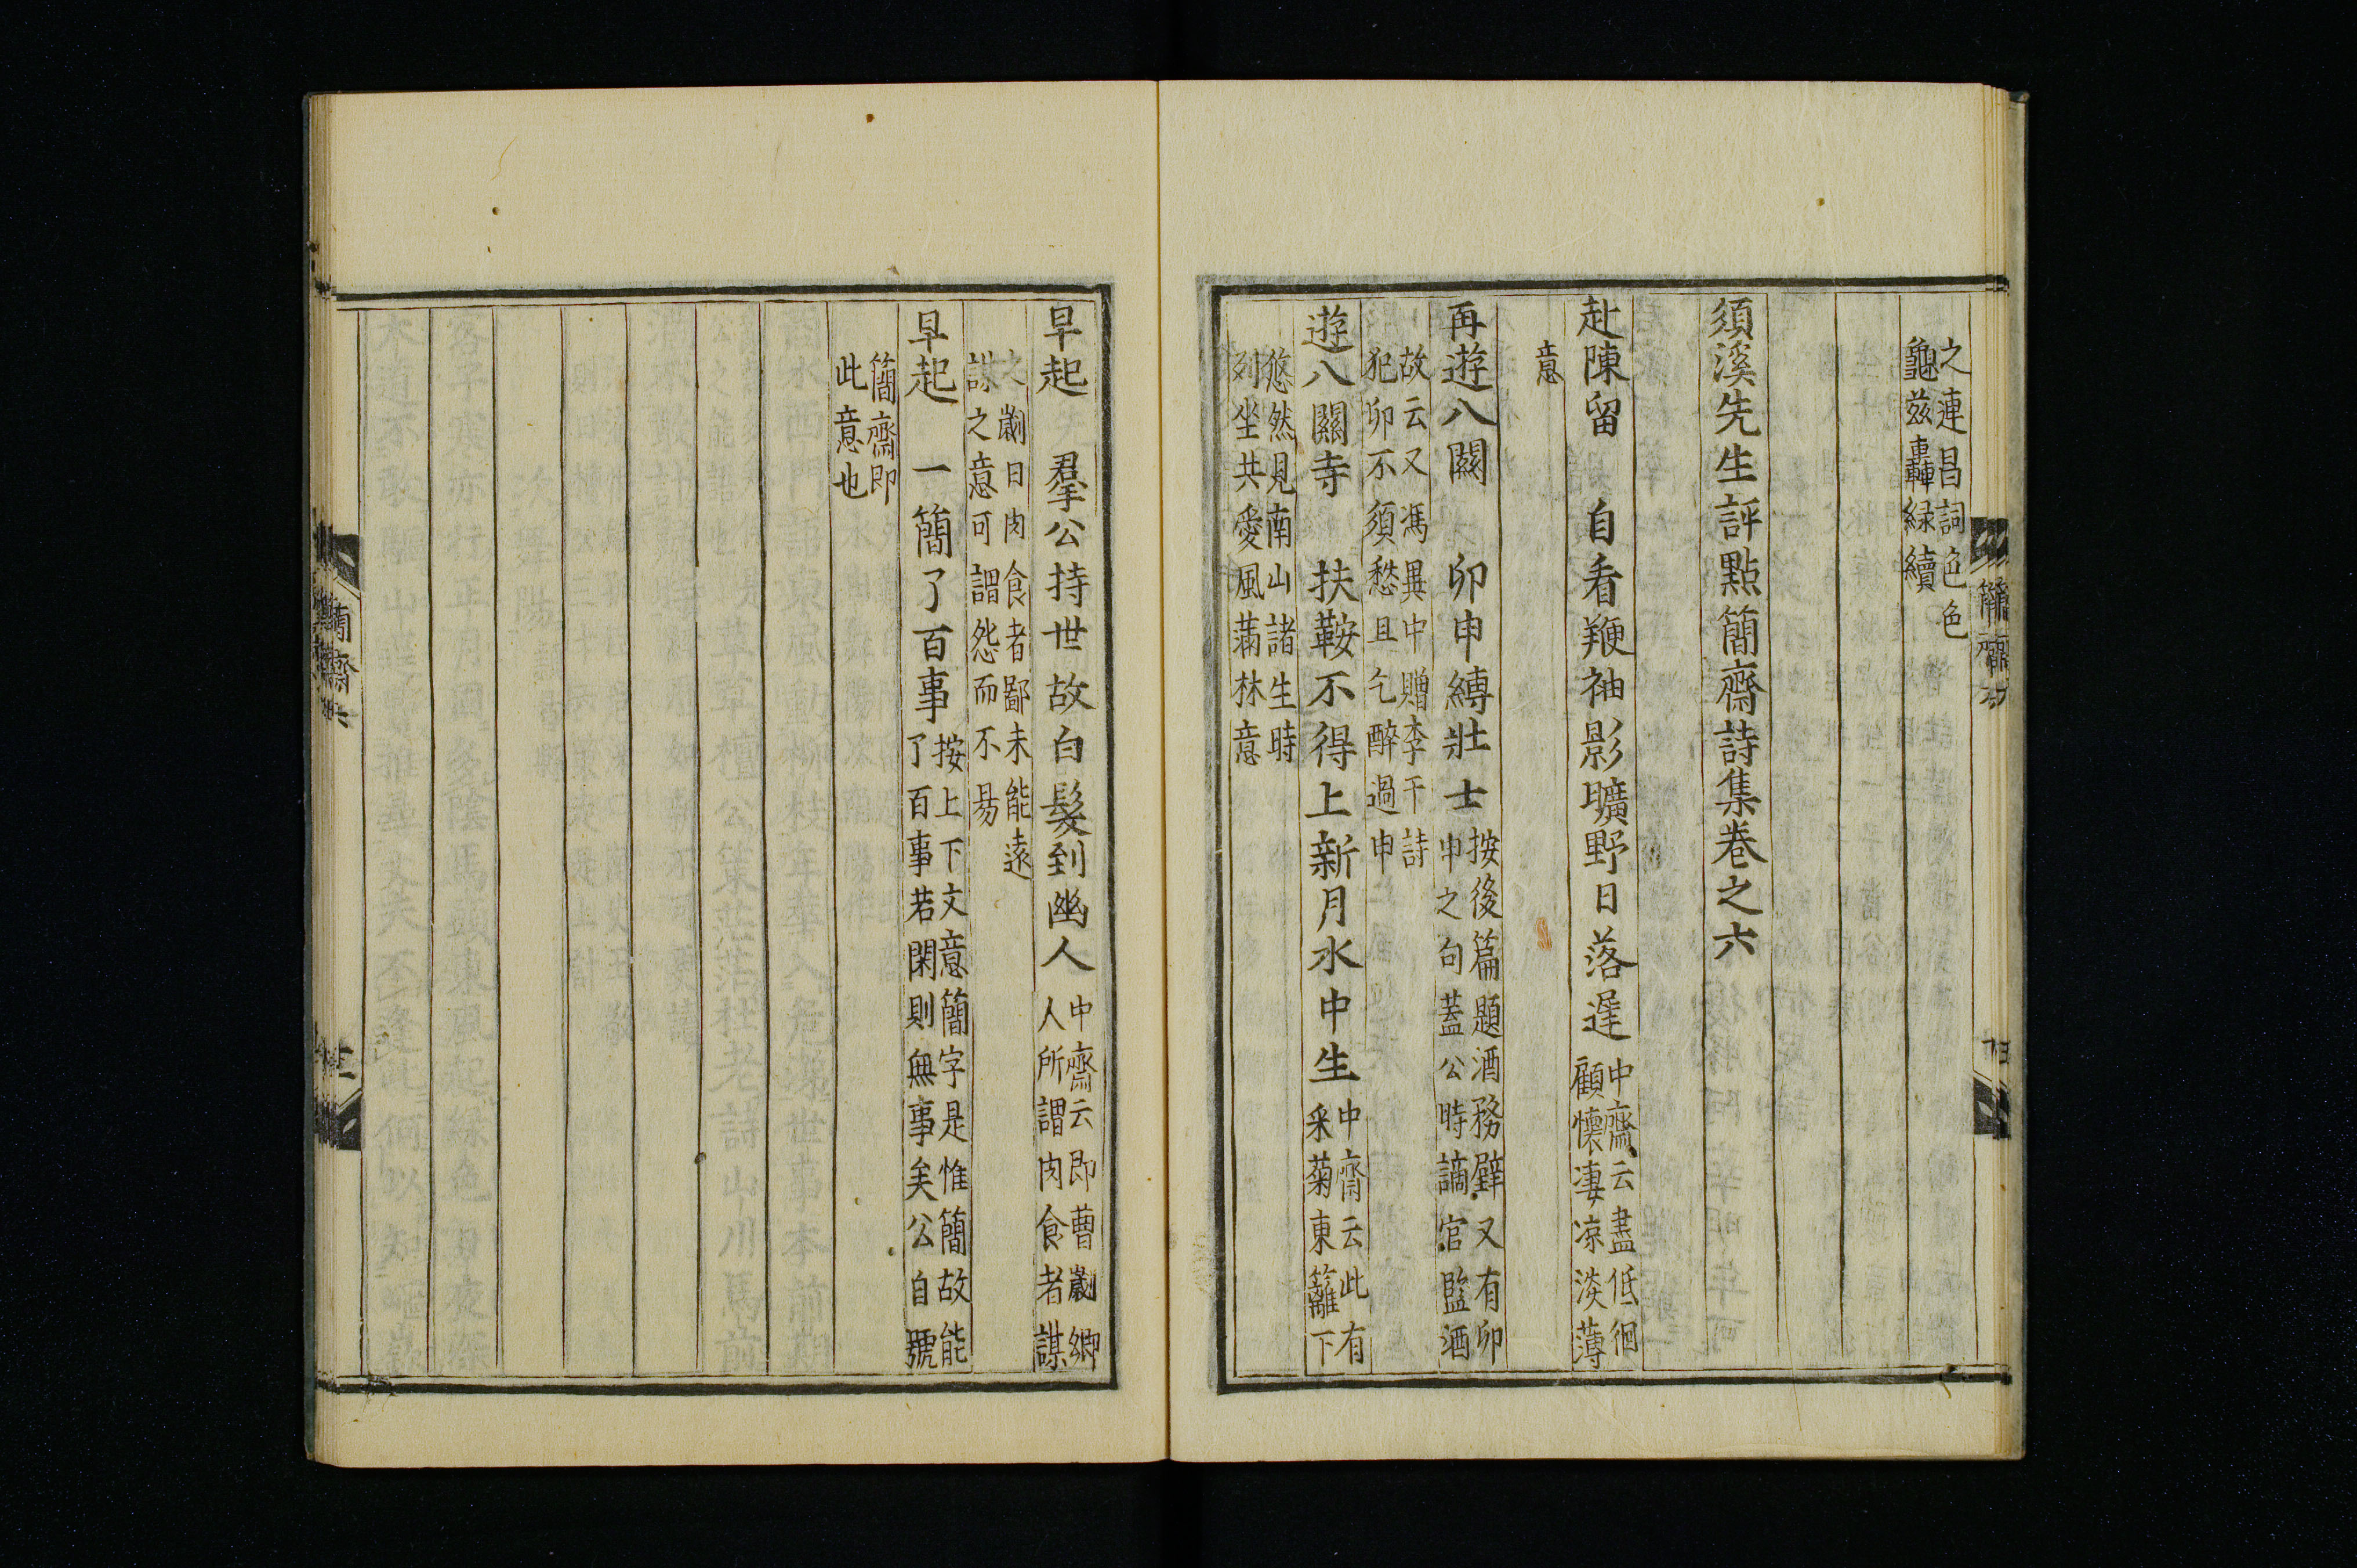 之連昌詞色色
龜玆轟綠續
須溪先生評點簡齋詩集卷之六
赴陳留　自看鞭袖影曠野日落遲
中齋云盡低徊
顧懷凄凉淡薄
意
再遊八關　卯申縛壯士
按後篇題酒務壁又有卯
申之句蓋公時謫官監酒
故云又馮異中贈李干詩
犯卯不須愁且乞醉過申
遊八關寺　扶鞍不得上新月水中生
中齋云此有
采菊東籬下
悠然見南山諸生時
列坐共愛風滿林意
早起　羣公持世故白髮到幽人
中齋云即曹劌鄉
人所謂肉食者謀
之劌曰肉食者鄙未能遠
謀之意可謂怨而不昜
早起　一簡了百事
按上下文意簡字是惟簡故能
了百事若閑則無事矣公自號
簡齋即
此意也
簡齋六